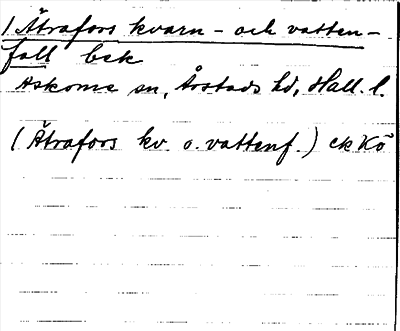 1 Ätrafors kvarn- och vatten-
fall bek
Askome sn, Årstads hd, Hall. l.
(Ätrafors kv. o. vattenf.) ek Kö